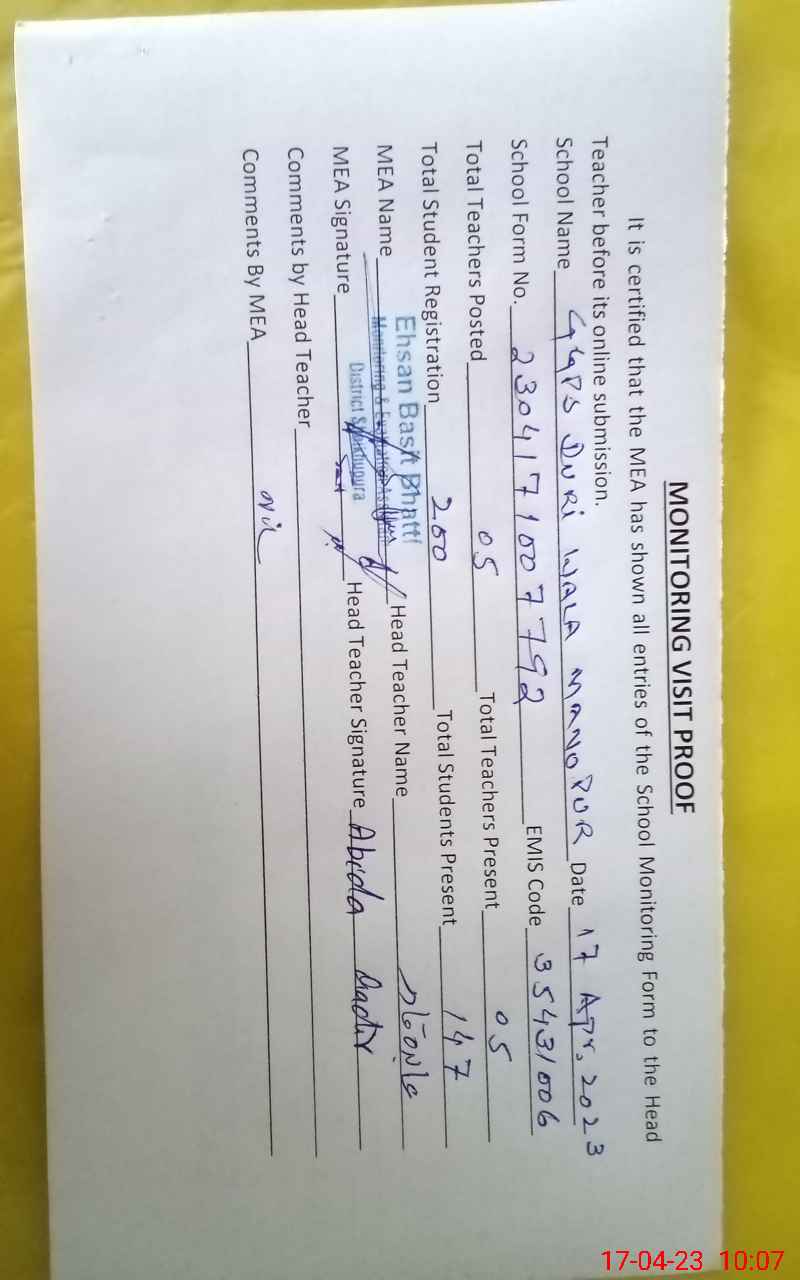 MONITORING VISIT PROOF
It is certified that the MEA has shown all entries of the School Monitoring Form to the Head
Teacher before its online submission.
School Name GGPS DURI WALA MANOPUR Date 17 Apr, 2023
School Form No. 2304171007792 EMIS Code 35431006
Total Teachers Posted 05 Total Teachers Present 05
Total Student Registration 200 Total Students Present 147
MEA Name Ehsan Basit Bhatti Head Teacher Name
Monitoring & Evaluation Assistant
District Sheikhupura
MEA Signature Head Teacher Signature Abida
Comments by Head Teacher
Comments By MEA Nil
17-04-23 10:07